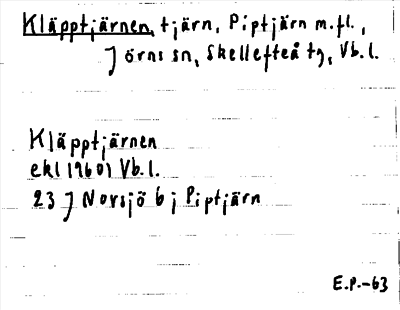 Kläpptjärnen, tjärn, Piptjärn m.fl.,
Jörns sn, Skellefteå tg, Vb.l.
Kläpptjärnen
ekl (1960) Vb.l.
23 J Norsjö b j Piptjärn
E.P.-63